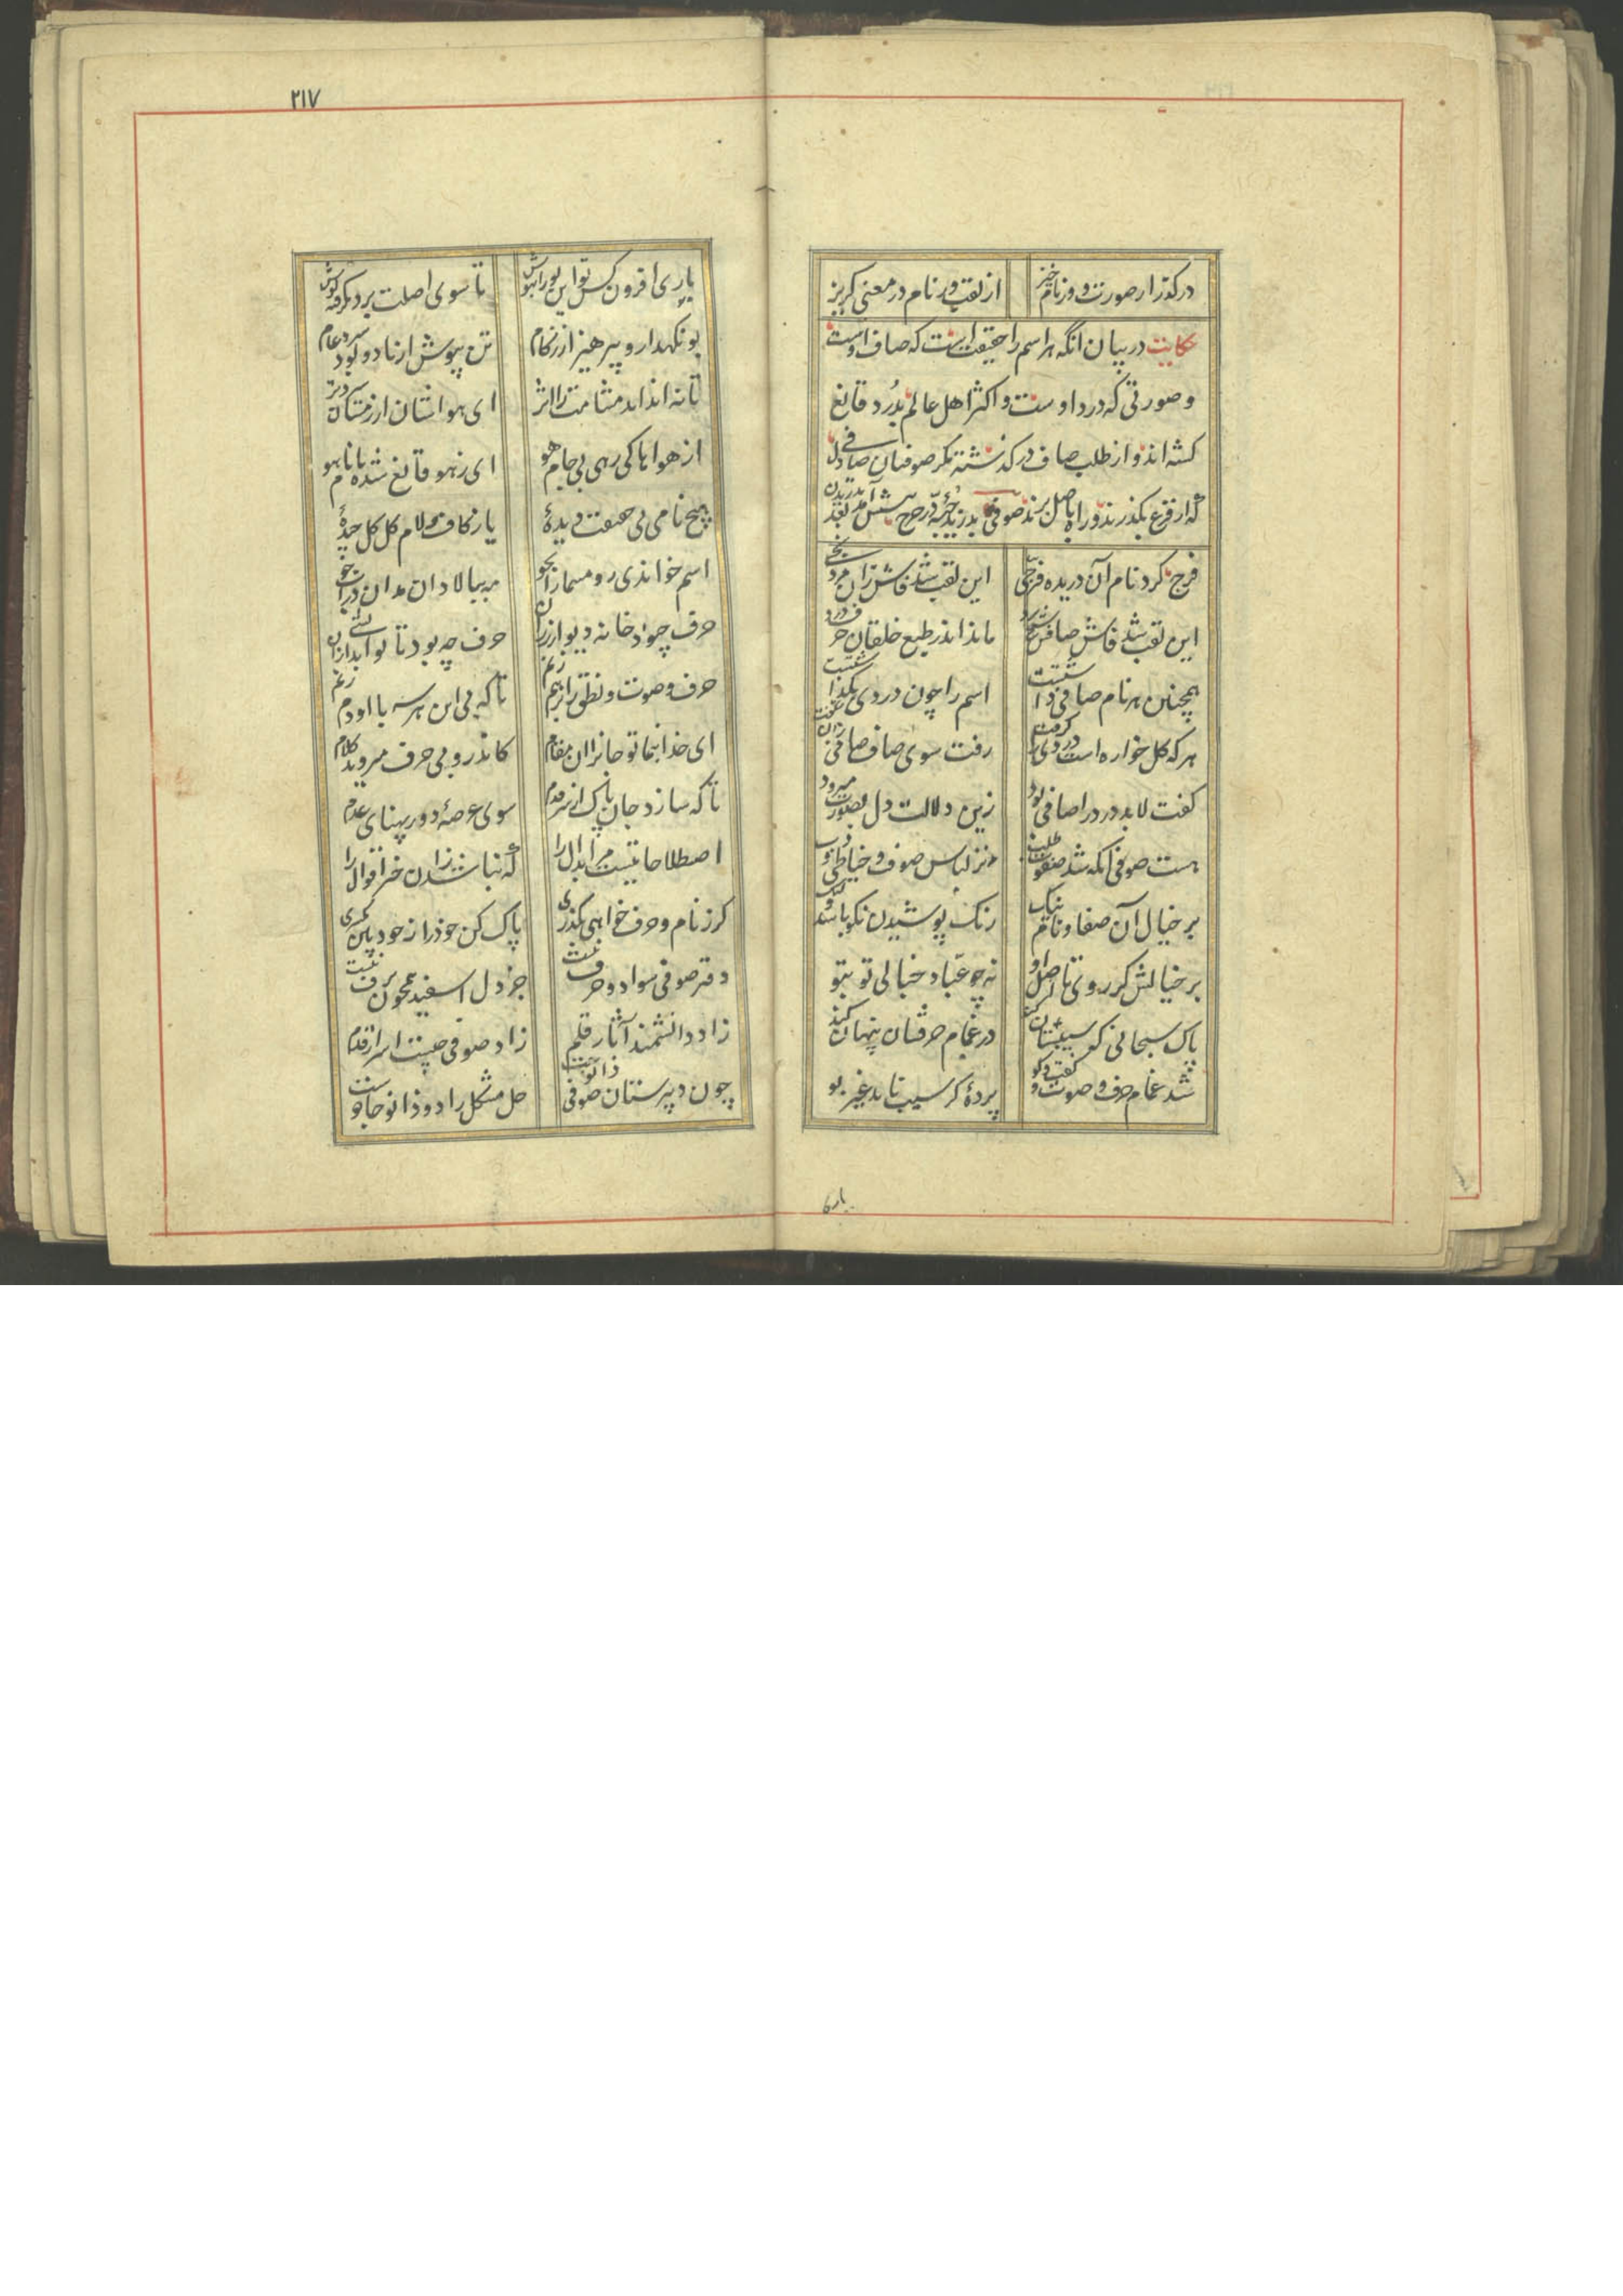 درگذر از صورت و وز نام خیز
از لقب وز نام در معنی گریز
حکایت در بیان آنکه هر اسم را حقیقت است که صاف اوست
و صورتی که درد اوست و اکثر اهل عالم بدُرد قانع
گشته‌اند و از طلب صاف درگذشته مگر صوفیان صافی دل
که از فرع بگذرند و راه باصل برند صوفی بدرید جبّه در حرج پیشش آمد بعد بدریدن فرج
کرد نام آن دریده فرجی
این لقب شد فاش زان مرد نجی
این لقب شد فاش صافش شیخ برد
ماند اندر طبع خلقان حرف درد
همچنین هر نام صافی داشتست
اسم را چون دردی بگذاشتست
هر که گل خواره است دردی را گرفت
رفت سوی صاف صافی زان شگفت
گفت لابد درد را صافی بود
زین دلالت دل بصفوت میرود
هست صوفی آنکه شد صفوت طلب
نز لباس صوف و خیاطی و دب
بر خیال آن صفا و نام نیک
رنگ پوشیدن نکو باشد ولیک
بر خیالش گر روی تا اصل او
نه چو عبّاد خیالی تو بتو
پاک سبحانی که سیبستان کند
در غمام حرفشان پنهان کند
شد غمام حرف و صوت و گفت و گو
پردهٔ کز سیب ناید غیر بو
یاری
۲۱۷
یاری افزون کش تو این بو را بهوش
تا سوی اصلت برد بگرفته گوش
بو نگهدار و بپرهیز از زکام
تن بپوش از باد و بود سرد عام
تا نه انداید مشامت را اثر
ای هواشان از زمستان سردتر
از هواها کی رهی بی جام هو
ای ز هو قانع شده با نام هو
هیچ نامی بی حقیقت دیدهٔ
یا ز کاف و لام گل گل چیدهٔ
اسم خواندی رو مسمارا بجو
مه ببالا دان مدان در آب جو
حرف چه بود تا تو اندیشی از آن
حرف چه بود خار دیوار رزان
حرف و صوت و نطق را برهم زنم
تا که بی این هر سه با او دم زنم
ای خدا بنما تو جانرا آن مقام
کاندرو بی حرف میروید کلام
تا که سازد جان پاک از سر قدم
سوی عرصهٔ دور پهنای عدم
اصطلاحاتیست مر ابدال را
که نباشد زان خبر اقوال را
گر ز نام و حرف خواهی بگذری
پاک کن خود را ز خود هین یکسری
دفتر صوفی سواد و حرف نیست
جز دل اسفید همچون برف نیست
زاد دانشمند آثار قلم
زاد صوفی چیست اسرار قدم
چون دبیرستان صوفی زانوست
حل مشکل را دو زانو جادوست